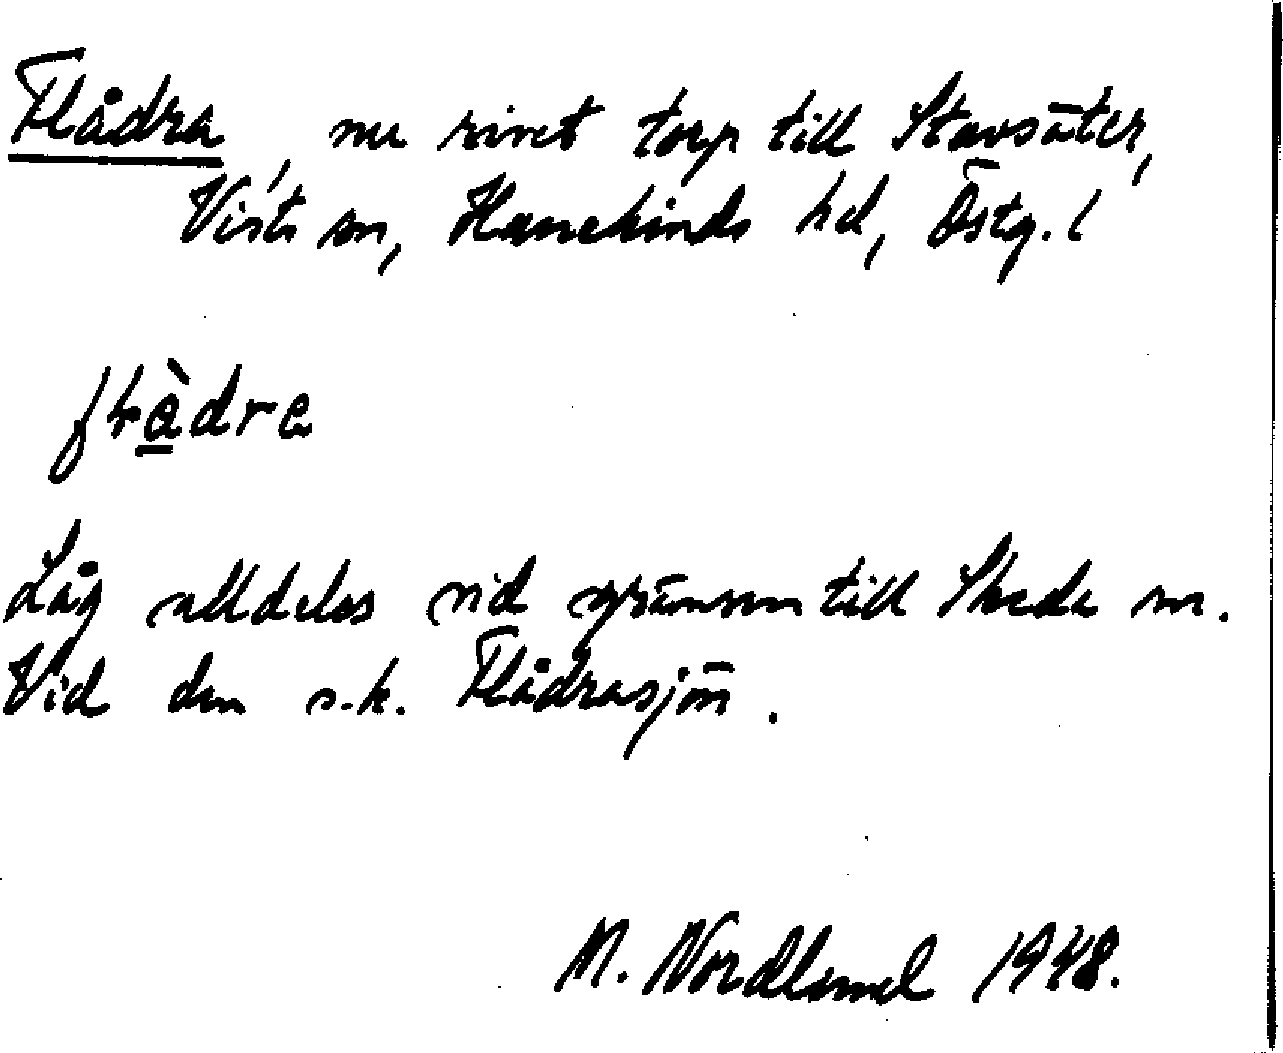 Flådra, nu rivet torp till Stavsäter,
Vists sn, Hanekinds hd, Östg. l
fḷàdra
Låg alldeles vid gränsen till Skeda sn.
Vid den s.k. Flådrasjön.
M. Nordlund 1948.